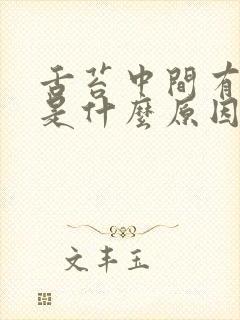 舌苔中間有
是什麼原因
文丰玉